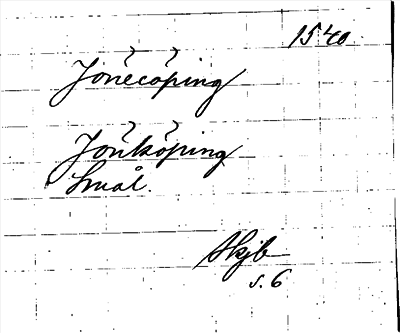 1540
Jönecöping
Jönköping
Smål.
Skjb
s. 6